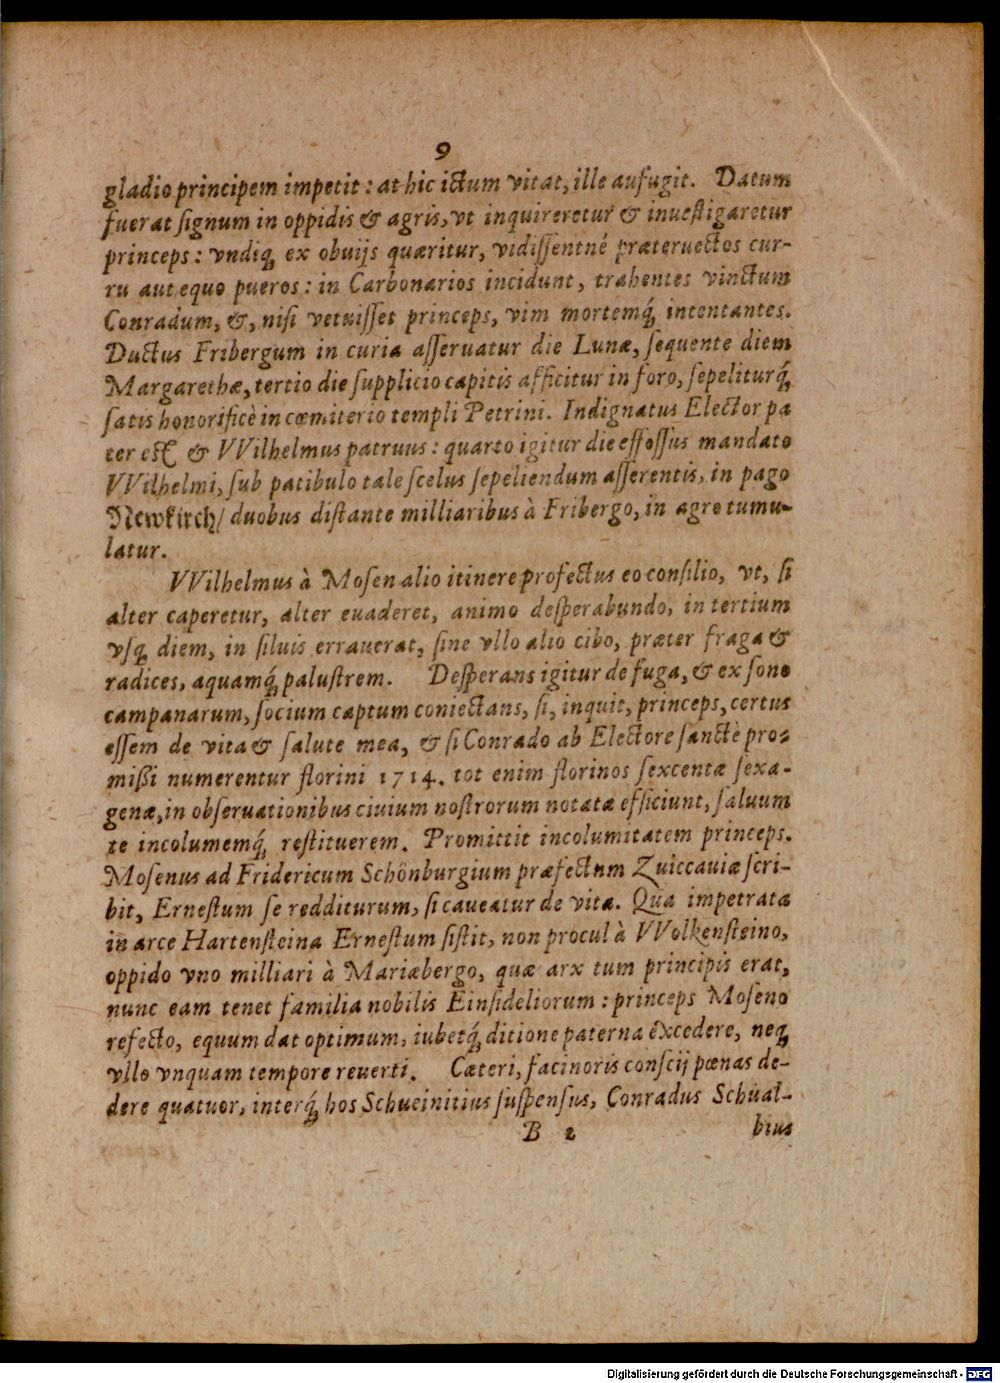 9
gladio principem impetit: at hic ictum vitat, ille aufugit. Datum
fuerat ſignum in oppidis & agris, vt inquireretur & inueſtigaretur
princeps: vndiq́; ex obuijs quæritur, vidiſſentné præteruectos cur-
ru aut equo pueros: in Carbonarios incidunt, trahentes vinctum
Conradum, &, niſi vetuiſſet princeps, vim mortemq́; intentantes.
Ductus Fribergum in curia aſſeruatur die Lunæ, ſequente diem
Margarethæ, tertio die ſupplicio capitis afficitur in foro, ſepeliturq́;
ſatis honorificè in cœmiterio templi Petrini. Indignatus Elector pa
ter eſt & VVilhelmus patruus: quarto igitur die effoſſus mandato
VVilhelmi, ſub patibulo tale ſcelus ſepeliendum aſſerentis, in pago
Newkirch/ duobus diſtante milliaribus à Fribergo, in agro tumu-
latur.
VVilhelmus à Moſen alio itinere profectus eo conſilio, vt, ſi
alter caperetur, alter euaderet, animo deſperabundo, in tertium
vſq; diem, in ſiluis errauerat, ſine vllo alio cibo, præter fraga &
radices, aquamq́; paluſtrem. Deſperans igitur de fuga, & ex ſono
campanarum, ſocium captum coniectans, ſi, inquit, princeps, certus
eſſem de vita & ſalute mea, & ſi Conrado ab Electore ſanctè pro-
mißi numerentur florini 1714. tot enim florinos ſexcentæ ſexa-
genæ, in obſeruationibus ciuium noſtrorum notatæ efficiunt, ſaluum
te incolumemq́; reſtituerem. Promittit incolumitatem princeps.
Moſenus ad Fridericum Schönburgium præfectum Zuiccauiæ ſcri-
bit, Erneſtum ſe redditurum, ſi caueatur de vita. Qua impetrata
in arce Hartenſteina Erneſtum ſiſtit, non procul à VVolkenſteino,
oppido vno milliari à Mariæbergo, quæ arx tum principis erat,
nunc eam tenet familia nobilis Einſideliorum: princeps Moſeno
refecto, equum dat optimum, iubetq́; ditione paterna excedere, neq;
vllo vnquam tempore reuerti. Cæteri, facinoris conſcij pœnas de-
dere quatuor, interq́; hos Schueinitius ſuſpenſus, Conradus Schual-
B 2 bius
Digitalisierung gefördert durch die Deutsche Forschungsgemeinschaft - DFG